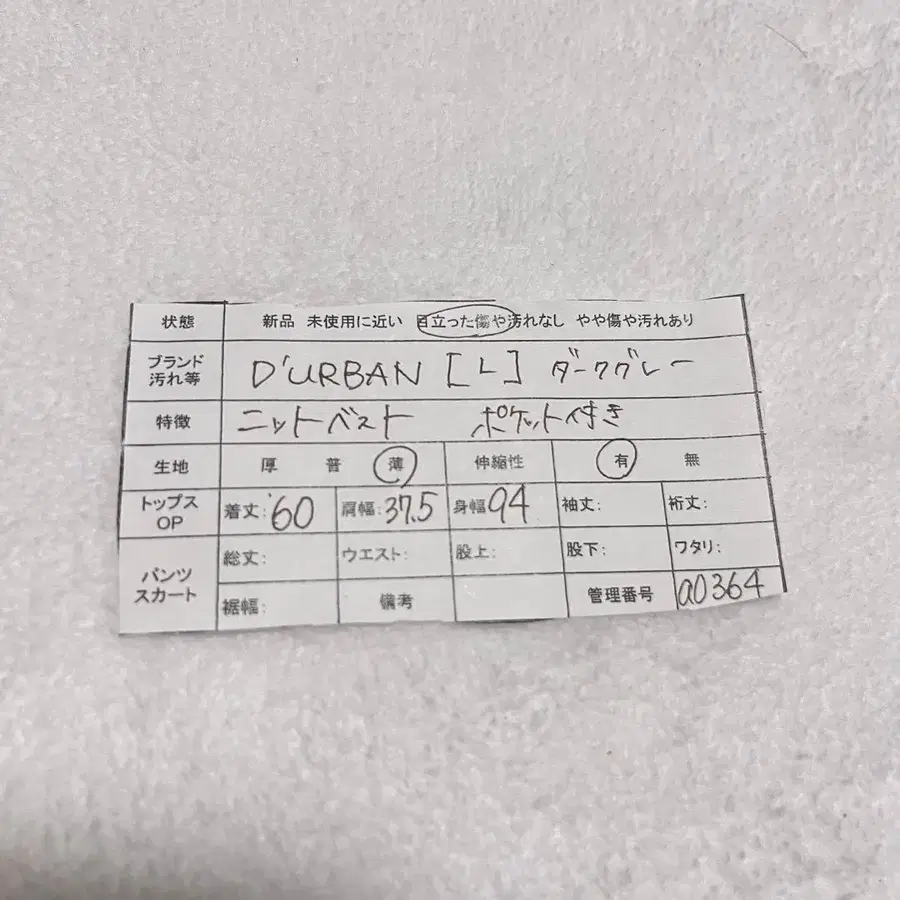 状態 新品 未使用に近い 目立った傷や汚れなし やや傷や汚れあり
ブランド
汚れ等 D'URBAN [L] ダークグレー
特徴 ニットベスト ポケット付き
生地 厚 普 薄 伸縮性 有 無
トップス
OP 着丈: 60 肩幅: 37.5 身幅 94 袖丈: 裄丈:
パンツ
スカート 総丈: ウエスト: 股上: 股下: ワタリ:
裾幅: 備考 管理番号 a0364